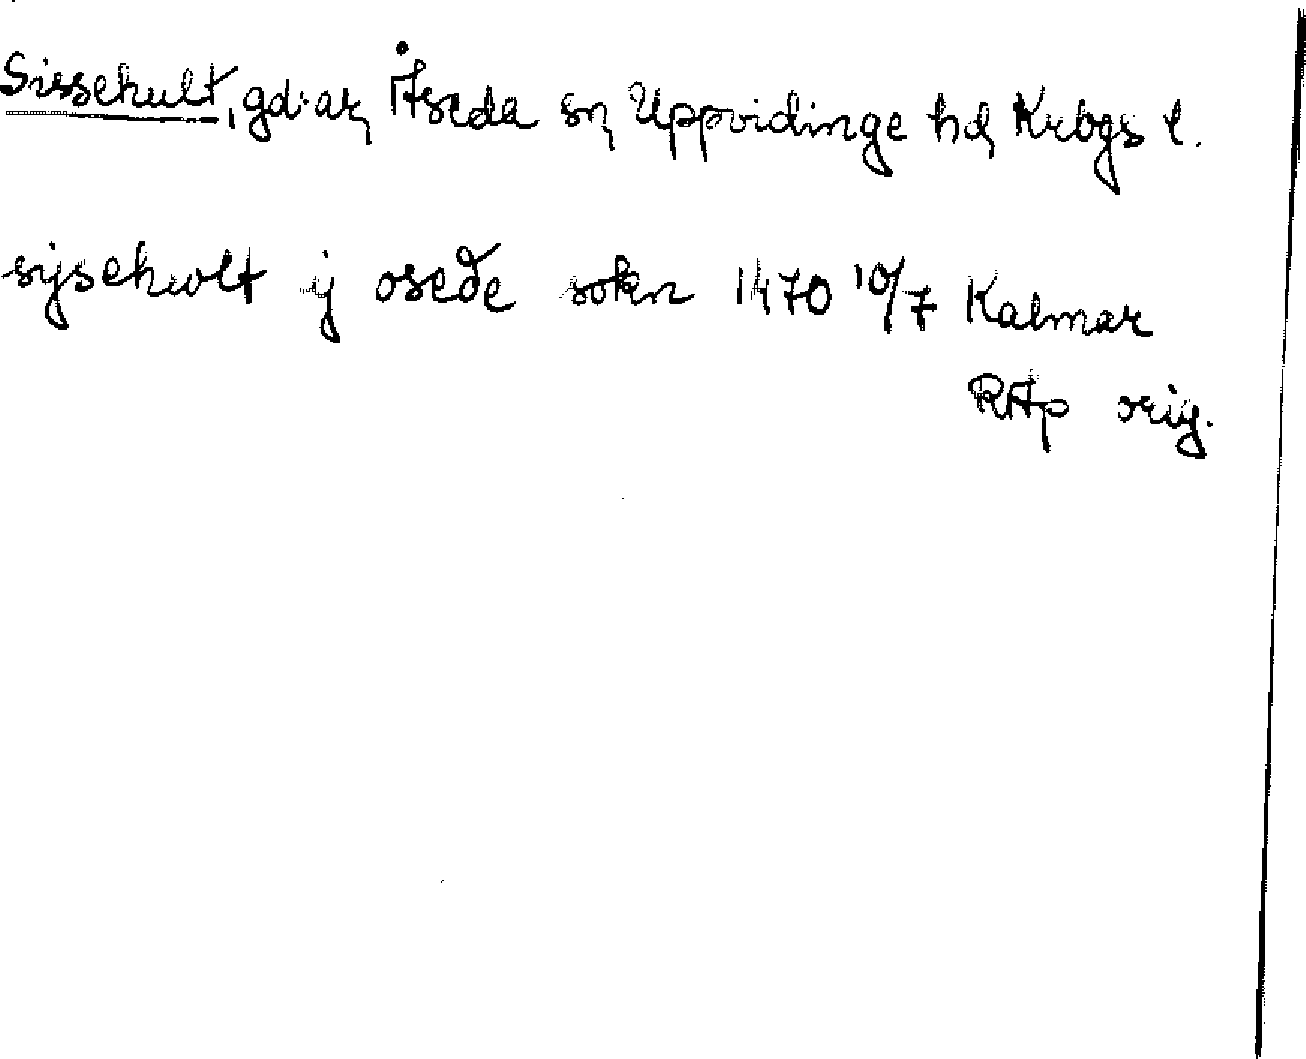 Sissehult, gd:ar, Åseda sn, Uppvidinge hd, Krbgs l.
sijsehwlt ij osede sokn 1470 10/7 Kalmar
RAp orig.